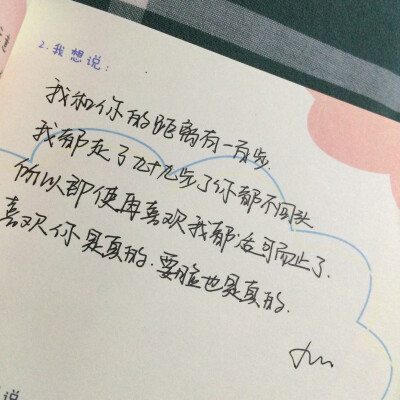 2.我想说:
我和你的距离有一百步.
我都走了九十九步了你都不回头
所以即使再喜欢我都适可而止了.
喜欢你是真的.要脸也是真的.
说